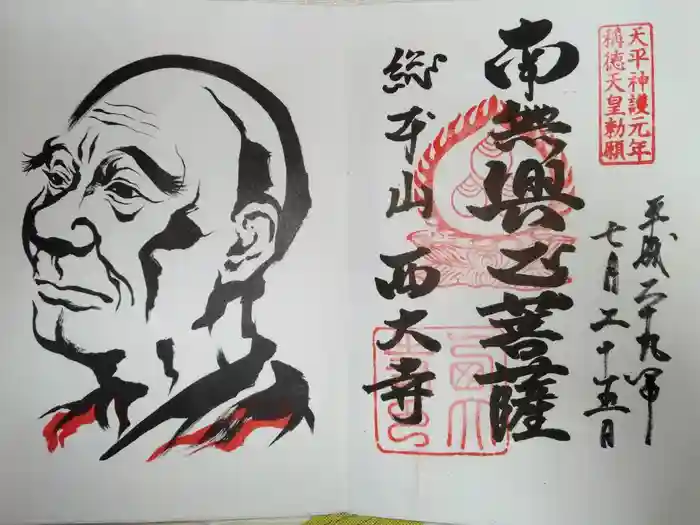 天平神護元年
稱徳天皇勅願
平成二十九年
七月二十五日
南無興正菩薩
総本山 西大寺